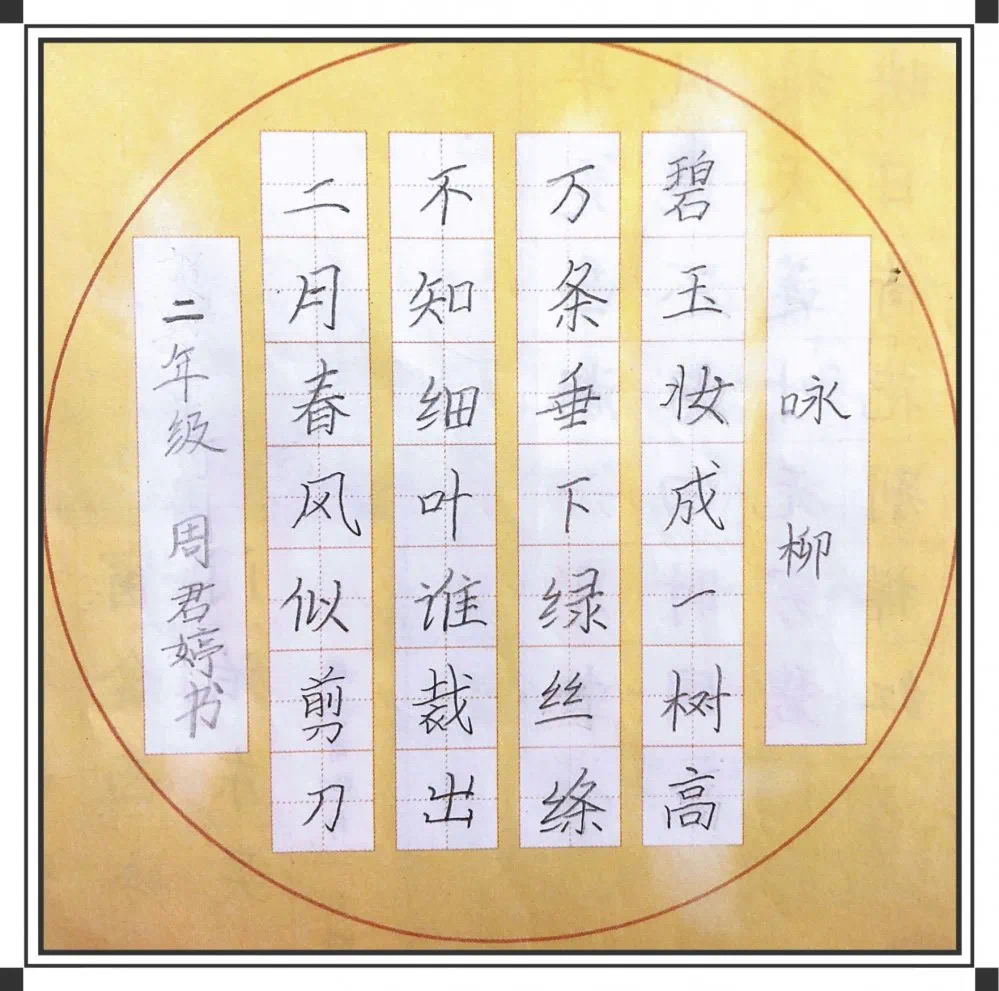 咏柳
碧玉妆成一树高
万条垂下绿丝绦
不知细叶谁裁出
二月春风似剪刀
二年级 周君婷书